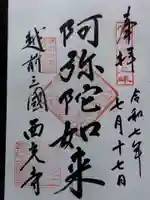 奉拝
令和七年
七月十七日
阿弥陀如来
越前三國
西光寺